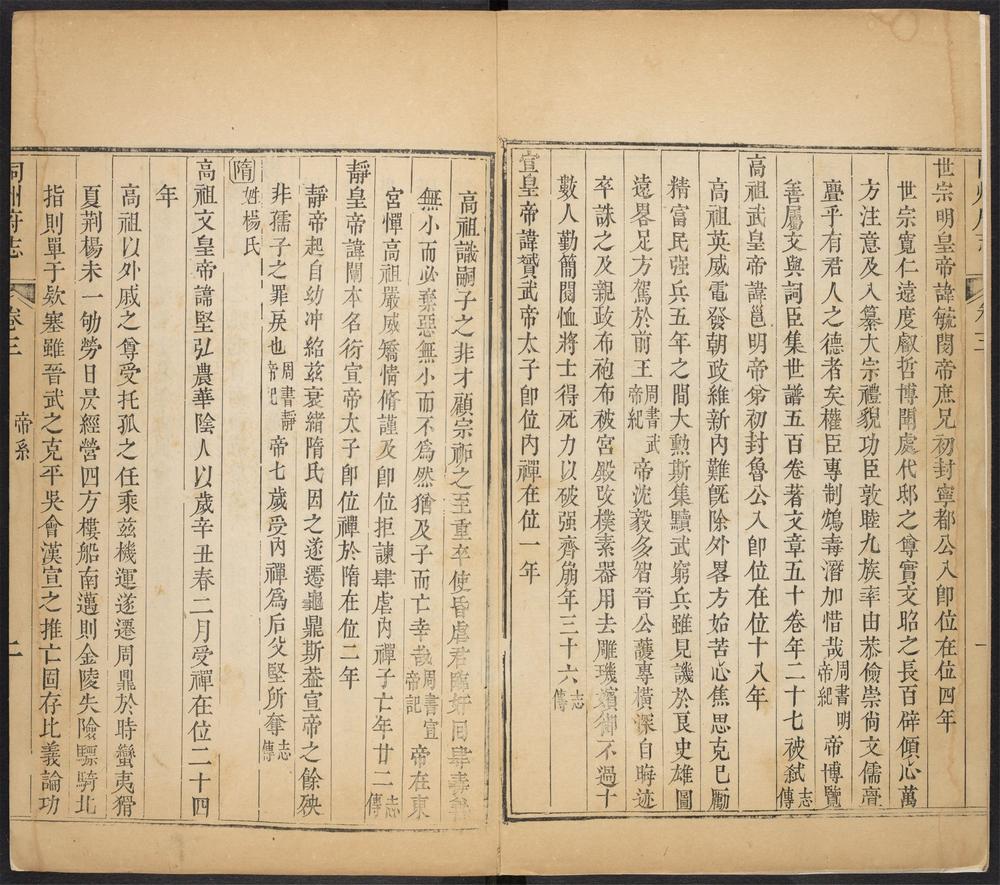 世宗明皇帝諱毓閔帝庶兄初封寧都公入即位在位四年
世宗寬仁遠度叡哲博聞處代邸之尊實文昭之長百辟傾心萬
方注意及入纂大宗禮貌功臣敦睦九族率由恭儉崇尚文儒亹
亹乎有君人之德者矣權臣專制鴆毒潛加惜哉周書明帝紀帝博覽
善屬文與詞臣集世譜五百卷著文章五十卷年二十七被弑志傳
高祖武皇帝諱邕明帝弟初封魯公入即位在位十八年
高祖英威電發朝政維新內難旣除外畧方始苦心焦思克已勵
精富民强兵五年之間大勲斯集黷武窮兵雖見譏於良史雄圖
遠畧足方駕於前王周書武帝紀帝沈毅多智晉公護專橫深自晦迹
卒誅之及親政布袍布被宮殿改樸素器用去雕璣嬪御不過十
數人勤簡閱恤將士得死力以破强齊崩年三十六志傳
宣皇帝諱贇武帝太子即位內禪在位一年
高祖識嗣子之非才顧宗祧之至重卒使昏虐君臨奸回肆毒
無小而必棄惡無小而不爲然猶及子而亡幸哉周書宣帝記帝在東
宮憚高祖嚴威矯情脩謹及即位拒諫肆虐內禪子亡年廿二志傳
靜皇帝諱闡本名衍宣帝太子即位禪於隋在位二年
靜帝起自幼冲紹茲衰緒隋氏因之遂遷龜鼎斯葢宣帝之餘殃
非孺子之罪戾也周書靜帝紀帝七歲受內禪爲后父堅所奪志傳
隋姓楊氏
高祖文皇帝諱堅弘農華陰人以歲辛丑春二月受禪在位二十四
年
高祖以外戚之尊受托孤之任乘茲機運遂遷周鼎於時蠻夷猾
夏荆楊未一劬勞日昃經營四方樓船南邁則金陵失險驃騎北
指則單于欵塞雖晉武之克平吳會漢宣之推亡固存比義論功
同州府志
卷三
帝系
二